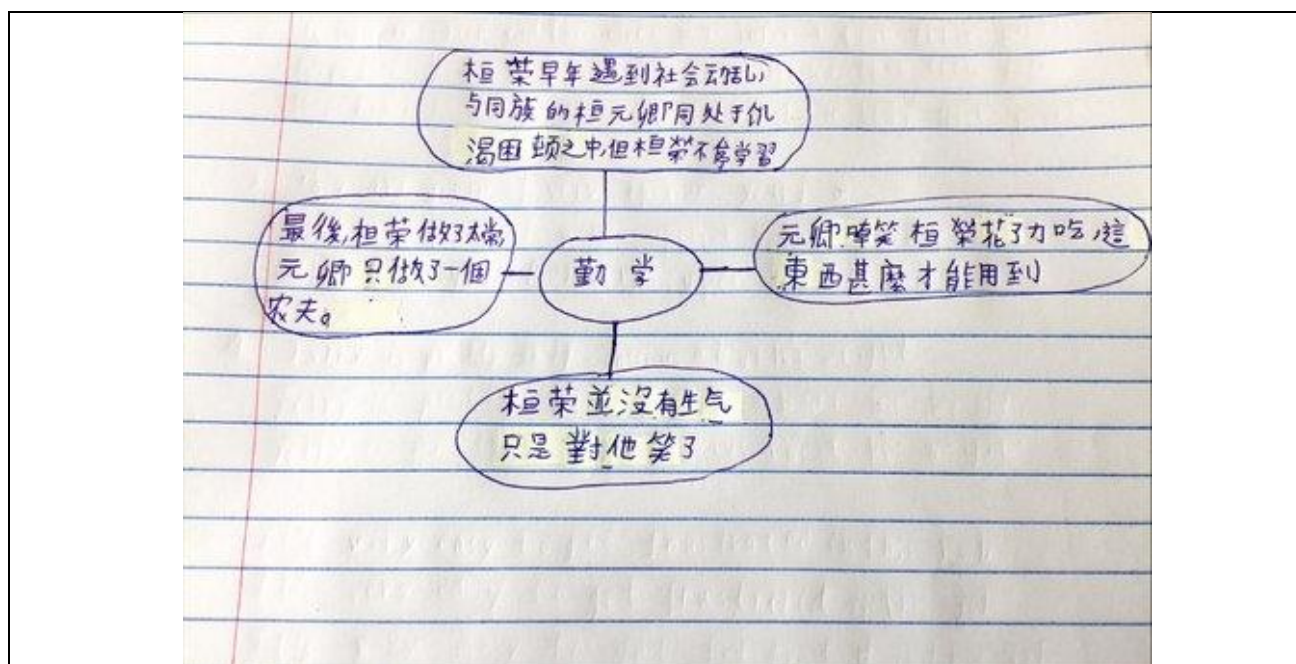 桓荣早年遇到社会动乱,
与同族的桓元卿同处于饥
渴困顿之中,但桓荣不舍学習
最後,桓荣做了太常,
元卿只做了一個
农夫。
勤学
元卿嘲笑桓榮花了力吃,這
東西甚麼才能用到
桓荣並沒有生气
只是對他笑了